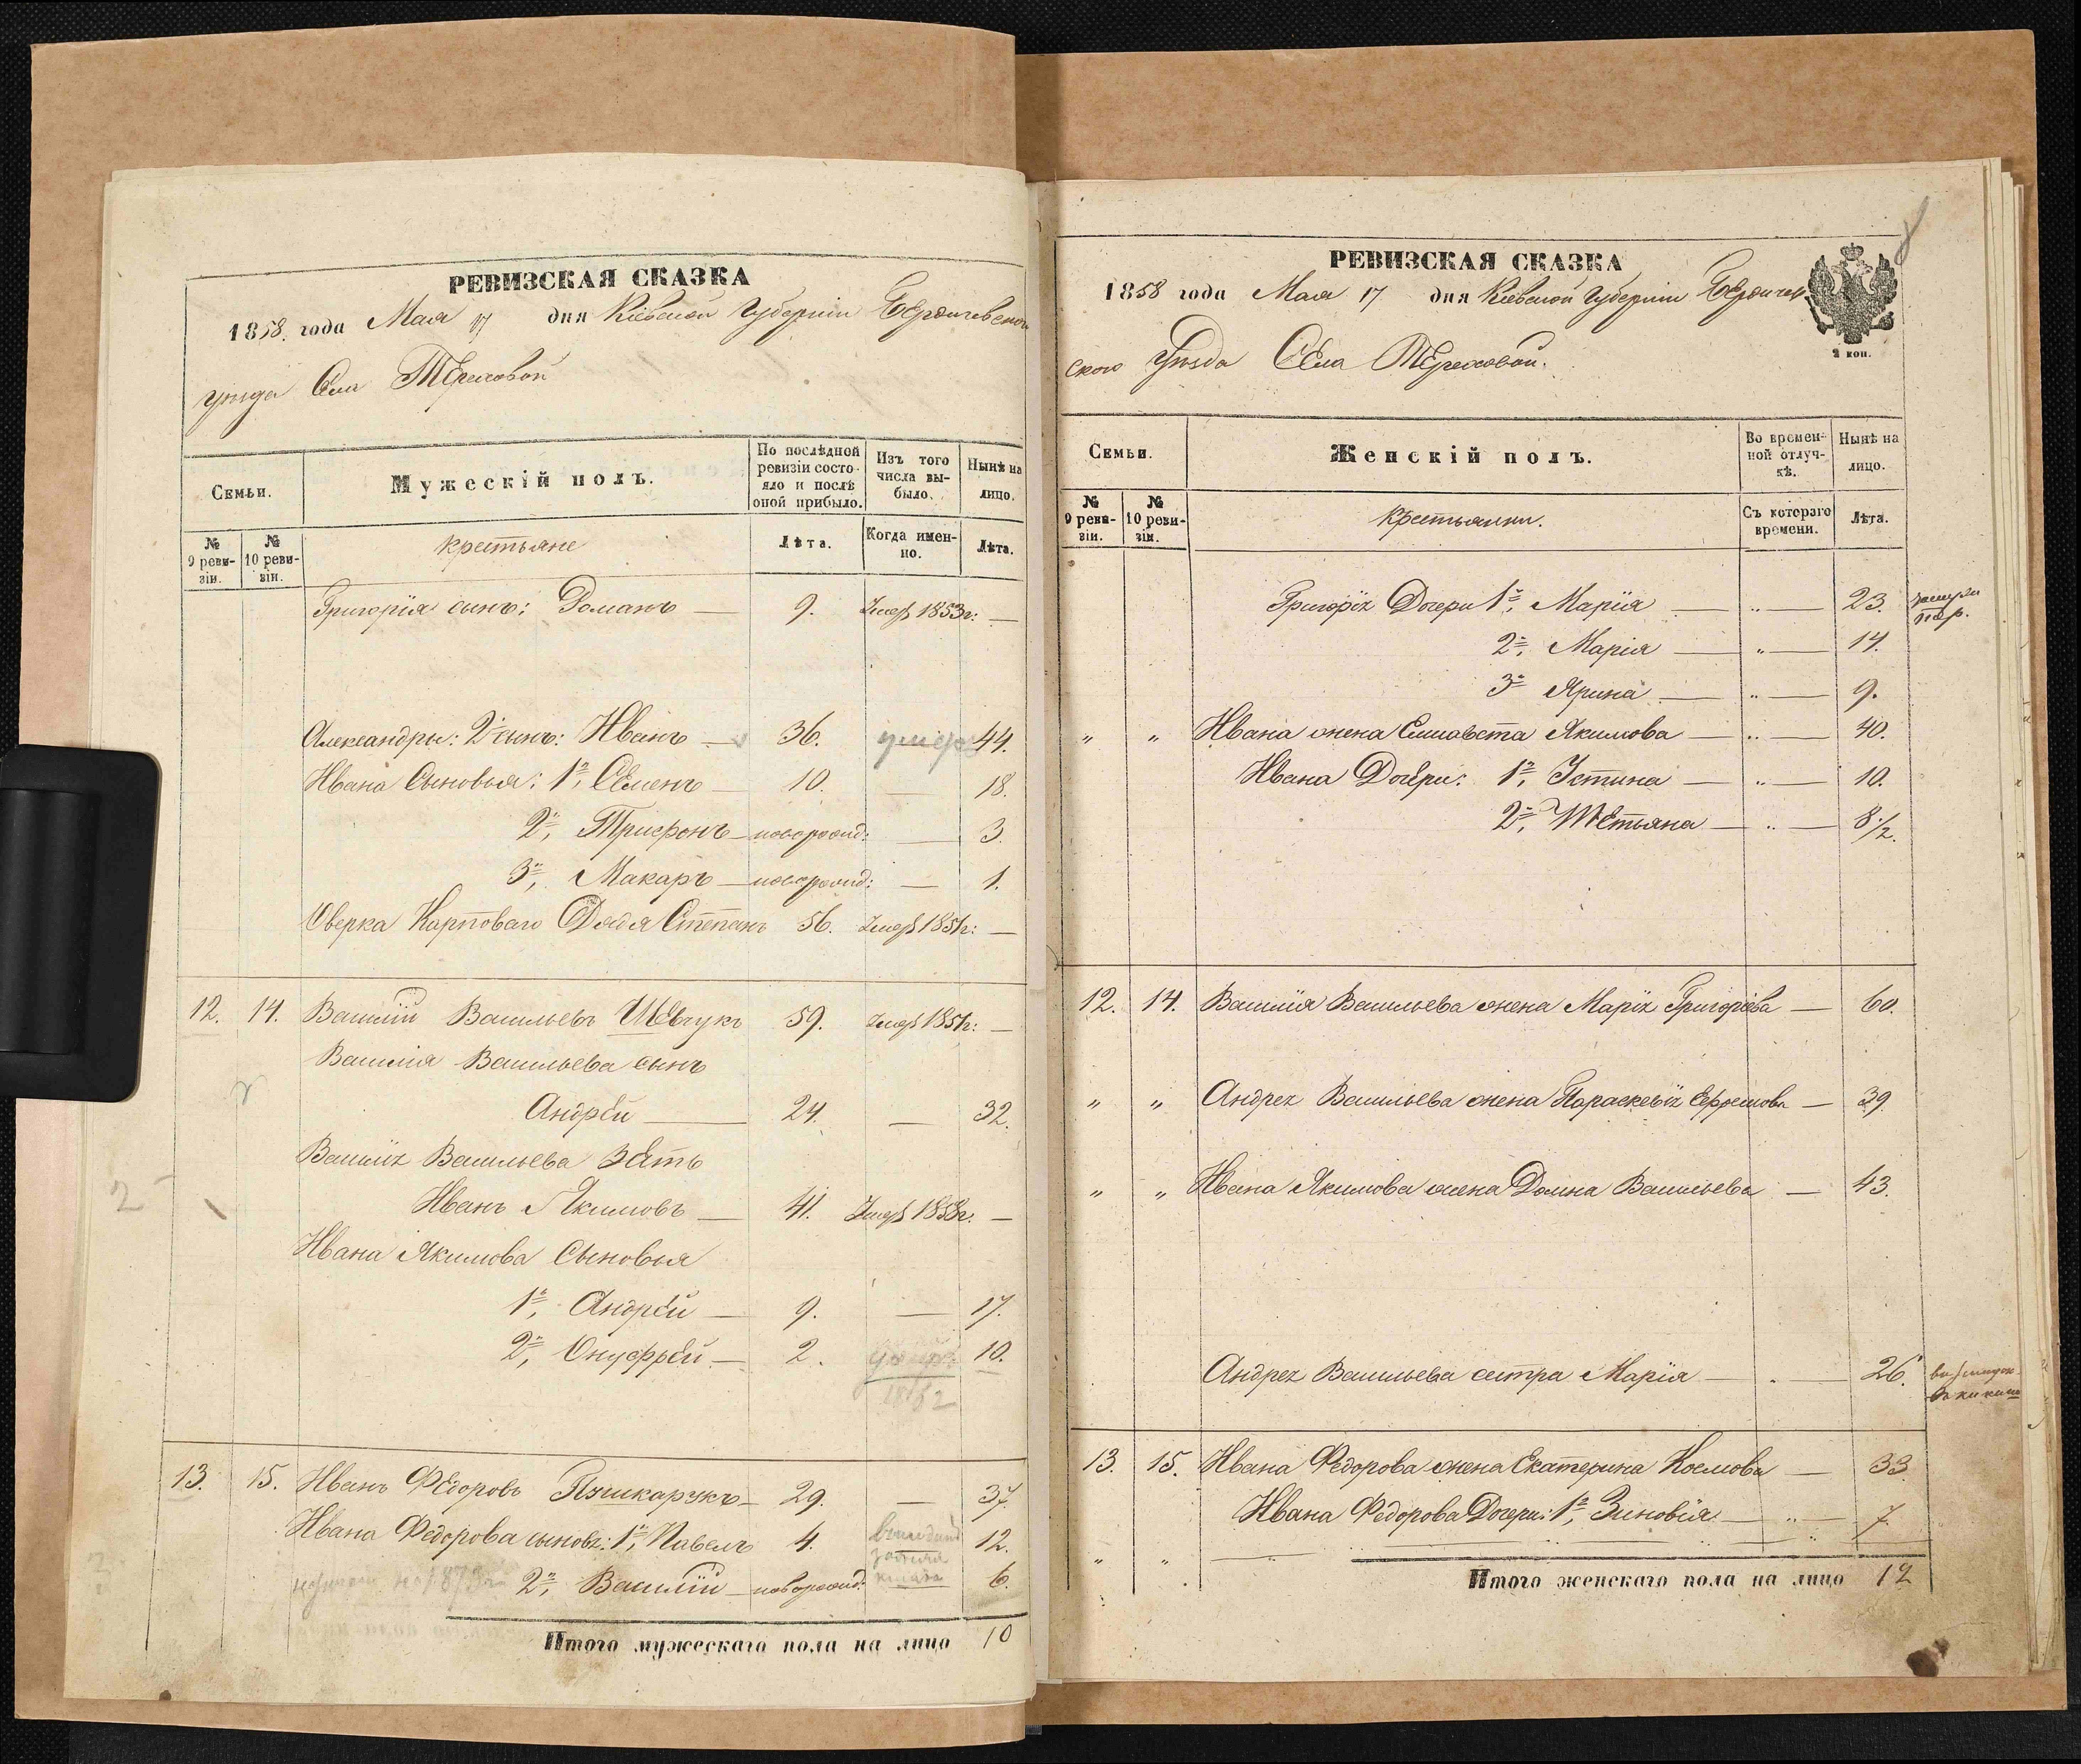 РЕВИЗСКАЯ СКАЗКА
1858. года Мая 17 дня Кіевской Губерніи Бердичевскаго
уѣзда Села Терехової
Семьи.
Мужескій полъ.
По послѣдной ревизіи состояло и послѣ оной прибыло.
Изъ того числа выбыло.
Нынѣ на лицо.
№ 9 ревизіи.
№ 10 ревизіи.
крестьяне
Лѣта.
Когда именно.
Лѣта.
Григорія сынъ: Романъ — 9. Умеръ 1853г: —
Александры: 2й сынъ: Иванъ — 36. умеръ 44.
Ивана Сыновья: 1й, Семенъ — 10. — 18.
2й, Трифонъ — новорожд: — 3.
3й, Макаръ — новорожд: — 1.
Оверка Карповаго Дядя Степанъ 56. Умеръ 1851г: —
12. 14. Василій Васильевъ Шевчукъ 59. Умеръ 1851г: —
Василія Васильева сынъ
Андрей — 24. — 32.
Василія Васильева Зять
Иванъ Якимовъ — 41. Умеръ 1858г. —
Ивана Якимова Сыновья
1й, Андрей — 9. — 17.
2й, Онуфрей — 2. умеръ 10.
1862
2
13. 15. Иванъ Федоровъ Пушкарукъ — 29. — 37.
Ивана Федорова сыновья: 1й, Павелъ 4. 12.
на 1873г 2й, Василій — новорожд: 6.
Итого мужескаго пола на лицо 10
РЕВИЗСКАЯ СКАЗКА
1858 года Мая 17 дня Кіевской Губерніи Бердичев
ского Уѣзда Села Терехової.
2 коп.
Семьи.
Женскій полъ.
Во временной отлучкѣ.
Нынѣ на лицо.
№ 9 ревизіи.
№ 10 ревизіи.
Крестьянки.
Съ котораго времени.
Лѣта.
Григорія Дочери 1я, Марія — „ — 23.
2я, Марія — „ — 14.
3я Ярина — „ — 9.
„ „ Ивана жена Елисавета Якимова — „ — 40.
Ивана Дочери: 1я, Устина — „ — 10.
2я, Тетьяна — „ — 8 1/2.
12. 14. Василія Васильева жена Марія Григорьева — 60.
„ „ Андрея Васильева жена Параскевія Ефремова — 39.
„ „ Ивана Якимова жена Домна Васильева — 43.
Андрея Васильева сестра Марія — „ — 26.
13. 15. Ивана Федорова жена Екатерина Космова — 33.
Ивана Федорова Дочери: 1я, Зиновія — „ — 7.
„ „
Итого женскаго пола на лицо 12